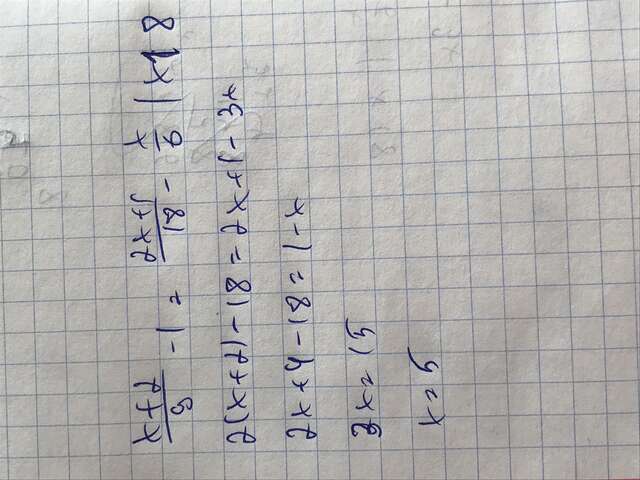 x+2/9 - 1 = 2x+1/18 - x/6 | x18
2(x+2) - 18 = 2x+1 - 3x
2x+4-18 = 1-x
3x = 15
x = 5